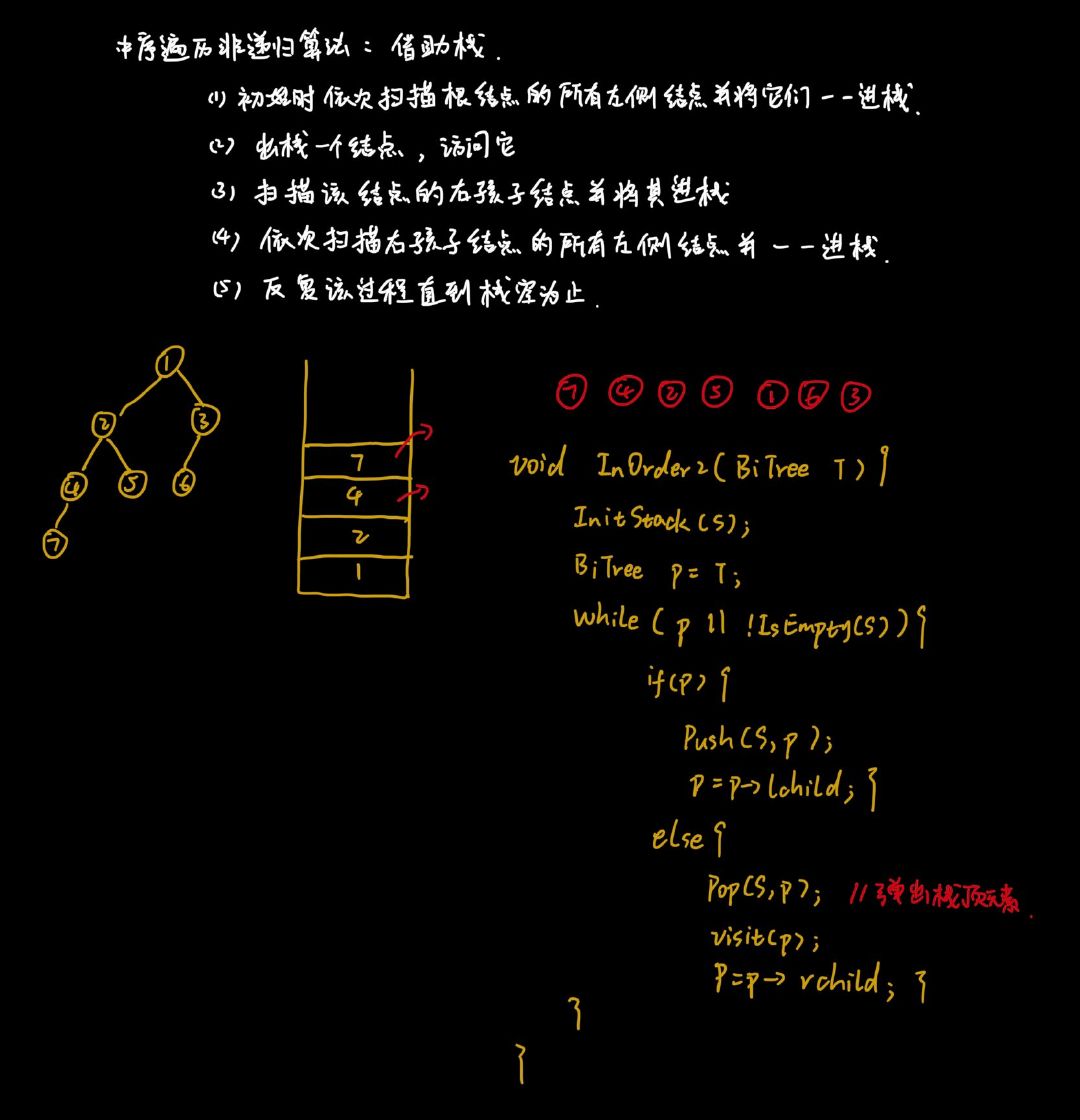 中序遍历非递归算法：借助栈.
(1) 初始时依次扫描根结点的所有左侧结点并将它们一一进栈.
(2) 出栈一个结点，访问它
(3) 扫描该结点的右孩子结点并将其进栈
(4) 依次扫描右孩子结点的所有左侧结点并一一进栈.
(5) 反复该过程直到栈空为止.
1
2 3
4 5 6
7
7
4
2
1
7 4 2 5 1 6 3
void InOrder2(BiTree T){
InitStack(S);
BiTree p=T;
while(p || !IsEmpty(S)){
if(p){
Push(S,p);
p=p->lchild;}
else{
Pop(S,p); //弹出栈顶元素.
visit(p);
p=p->rchild;}
}
}